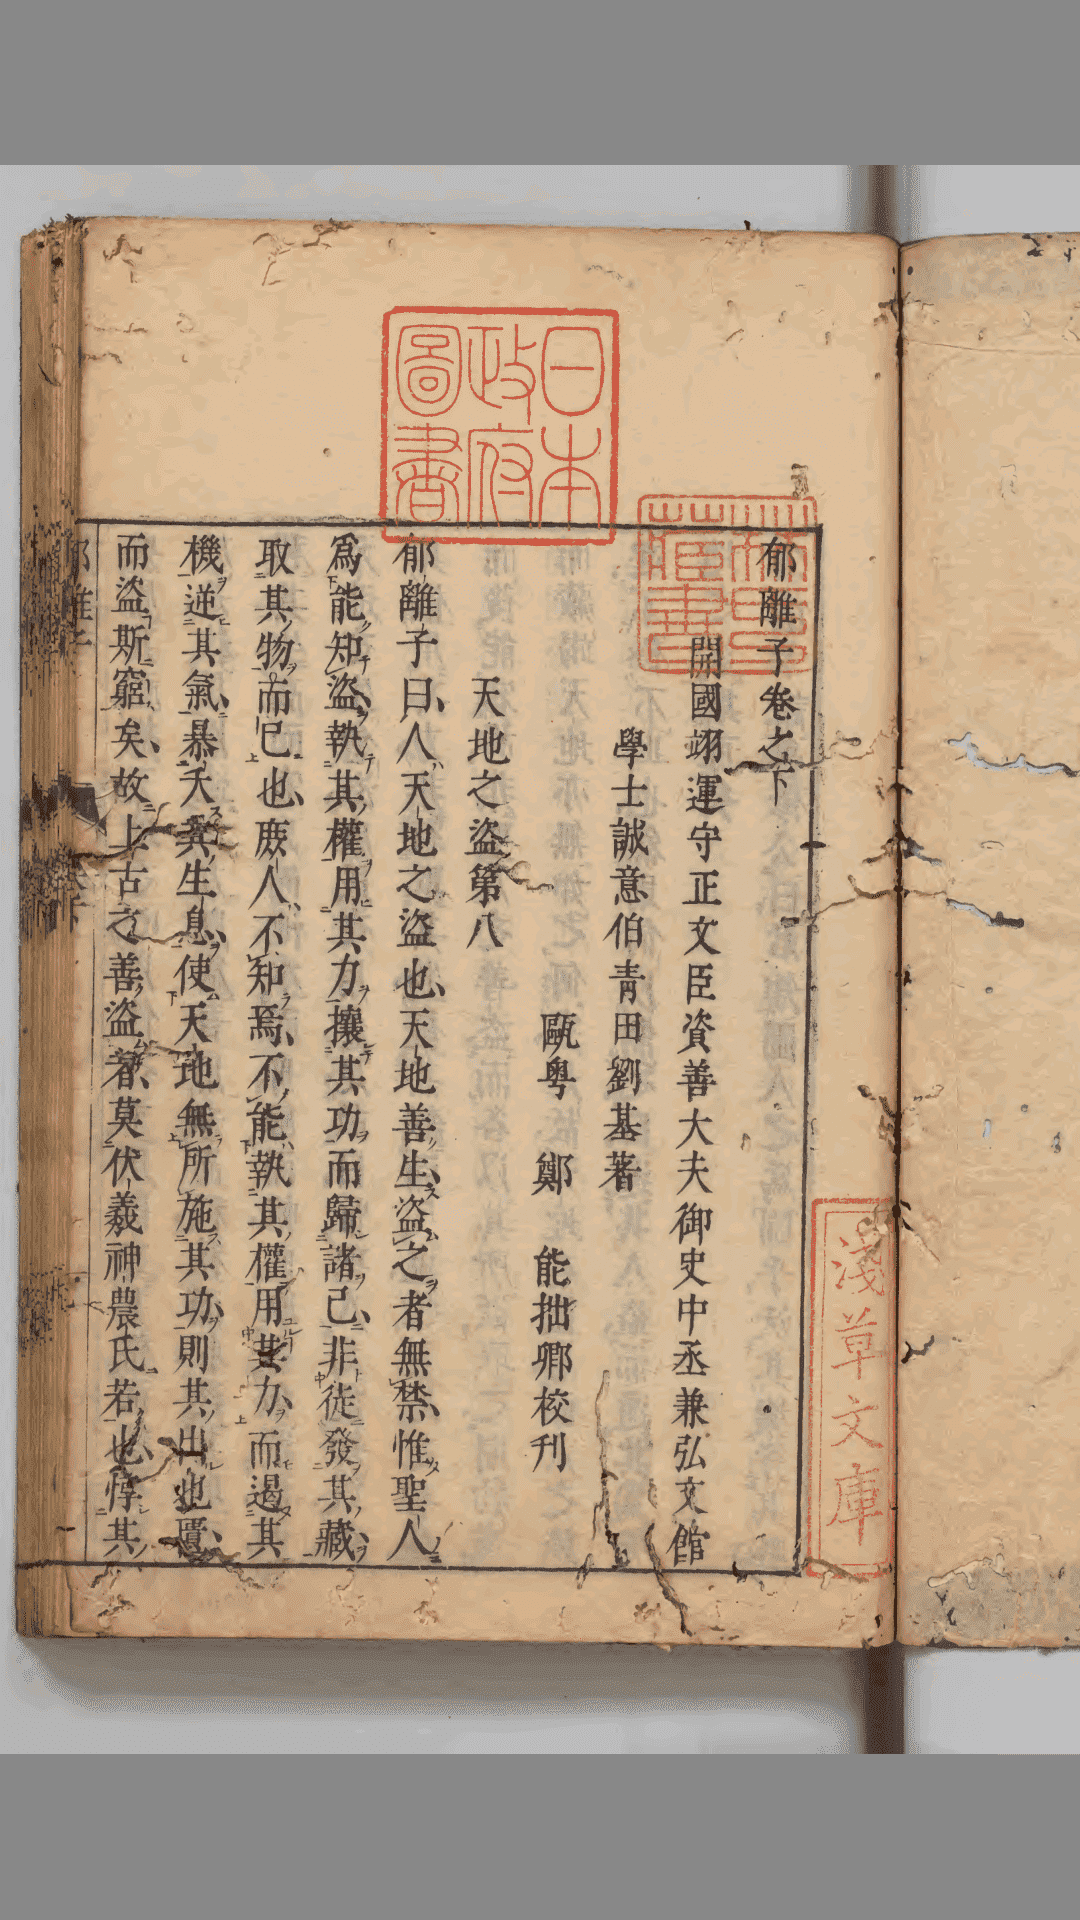 郁離子卷之下
開國翊運守正文臣資善大夫御史中丞兼弘文館
學士誠意伯青田劉基著
甌粵 鄭 能拙卿校刊
天地之盜第八
郁離子曰人天地之盜也天地善生盜之者無禁惟聖人
爲能知盜執其權用其力攘其功而歸諸己非徒發其藏
取其物而已也庶人不知焉不能執其權用其力而遏其
機逆其氣暴夭其生息使天地無所施其功則其出也匱
而盜斯窮矣故上古之善盜者莫伏羲神農氏若也惇其
郁離子
日本
政府
圖書
淺草文庫